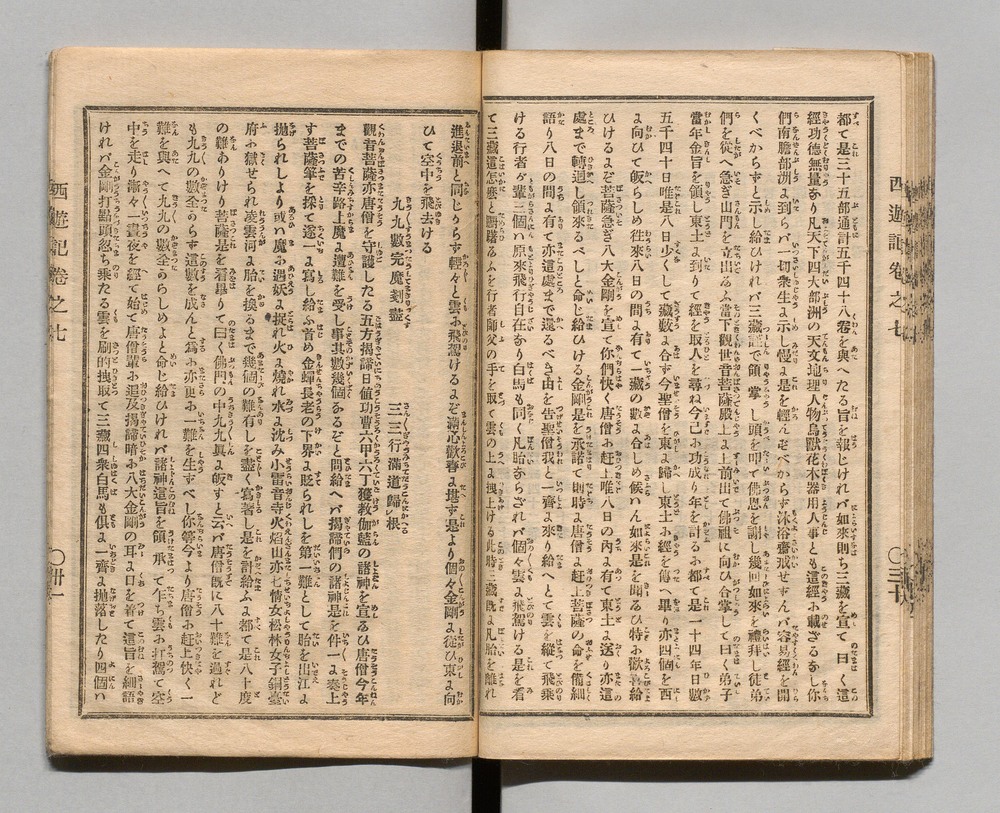 西遊記卷之七
〇三十
都て是三十五部通計五千四十八卷を與へたる旨を報とけれバ如來則ち三藏を宣て曰く這
經功德無量あり凡天下四大部洲の天文地理人物鳥獸花木器用人事とも這經お載さるあし你
們南膽部洲よ到らバ一切衆生よ示し慢よ是を輕んずべからす沐浴齋戒せずんバ容易經を開
くべからずと示し給ひけれバ三藏謹で領掌し頭を叩て佛恩を謝し幾回如來を禮拜し徒弟
們を從へ急ぎ山門を立出るふ當下觀世音菩薩殿上よ上前出て佛祖に向ひ合掌して曰く弟子
當年金旨を領し東土よ到りて經を取人を尋ね今已お功成り年を計るお都て是一十四年日數
五千四十日唯是八日少くして藏數よ合す今聖僧を東よ歸し東土お經を傳へ畢り亦四個を西
よ向ひて皈らしめ往來八日の間よ有て一藏の數よ合しめ候ハん如來是を聞るひ特お歡喜給
ひけるよぞ菩薩急ぎ八大金剛を宣して你們快く唐僧お赶上唯八日の內よ有て東土よ送り亦這
處まで轉迴し領來るべしと命じ給ひける金剛是を承諾て則時よ唐僧よ赶上菩薩の命を備細
語り八日の間よ有て亦這處まで還るべき由を告聖僧我と一齊よ來り給へとて雲を縱て飛乘
ける行者が輩三個ハ原來飛行自在あり白馬も同く凡胎あらされバ個々雲よ飛駕ける是を看
て三藏這怎麽と躊躇るふを行者師父の手を取て雲の上よ拽上ける此時三藏既よ凡胎を離れ
進退前と同じからす輕々と雲お飛駕けるよぞ滿心歡喜よ堪す是より個々金剛よ從ひ東よ向
ひて空中を飛去ける
九九數完魔刻盡　三三行滿道歸根
觀音菩薩亦唐僧を守護したる五方揭諦日値功曹六甲六丁獲敎伽藍の諸神を宣るひ唐僧今年
までの苦辛路上魔よ遭難を受し事其數幾個あるぞと問給へバ揭諦們の諸神是を件一く奏上
す菩薩筆を採て逐一よ寫し給ふ首め金蟬長老の下界よ貶られしを第一難として胎を出江よ
拋られしより或ハ魔お遇妖よ捉れ火よ燒れ水よ沈み小雷音寺火焰山亦七情女松林女子銅臺
府お獄せられ凌雲河よ胎を換るまで幾個の難有しを盡く寫著し是を計給ふよ都て是八十度
の難ありけり菩薩是を看畢りて曰く佛門の中九九眞よ皈すと云バ唐僧既に八十難を過れど
も九九の數全からす這數を成んと爲お亦更お一難を生すべし你等今より唐僧お赶上快く一
難を與へて九九の數全らしめよと命じ給ひけれバ諸神這旨を領承て乍ち雲お打駕て空
中を走り漸々一晝夜を經て始て唐僧輩お追及揭諦暗お八大金剛の耳よ口を着て這旨を細語
けれバ金剛打點頭忽ち乘たる雲を刷的拽取て三藏四衆白馬も俱よ一齊よ拋落したり四個ハ
西遊記卷之七
〇卅一